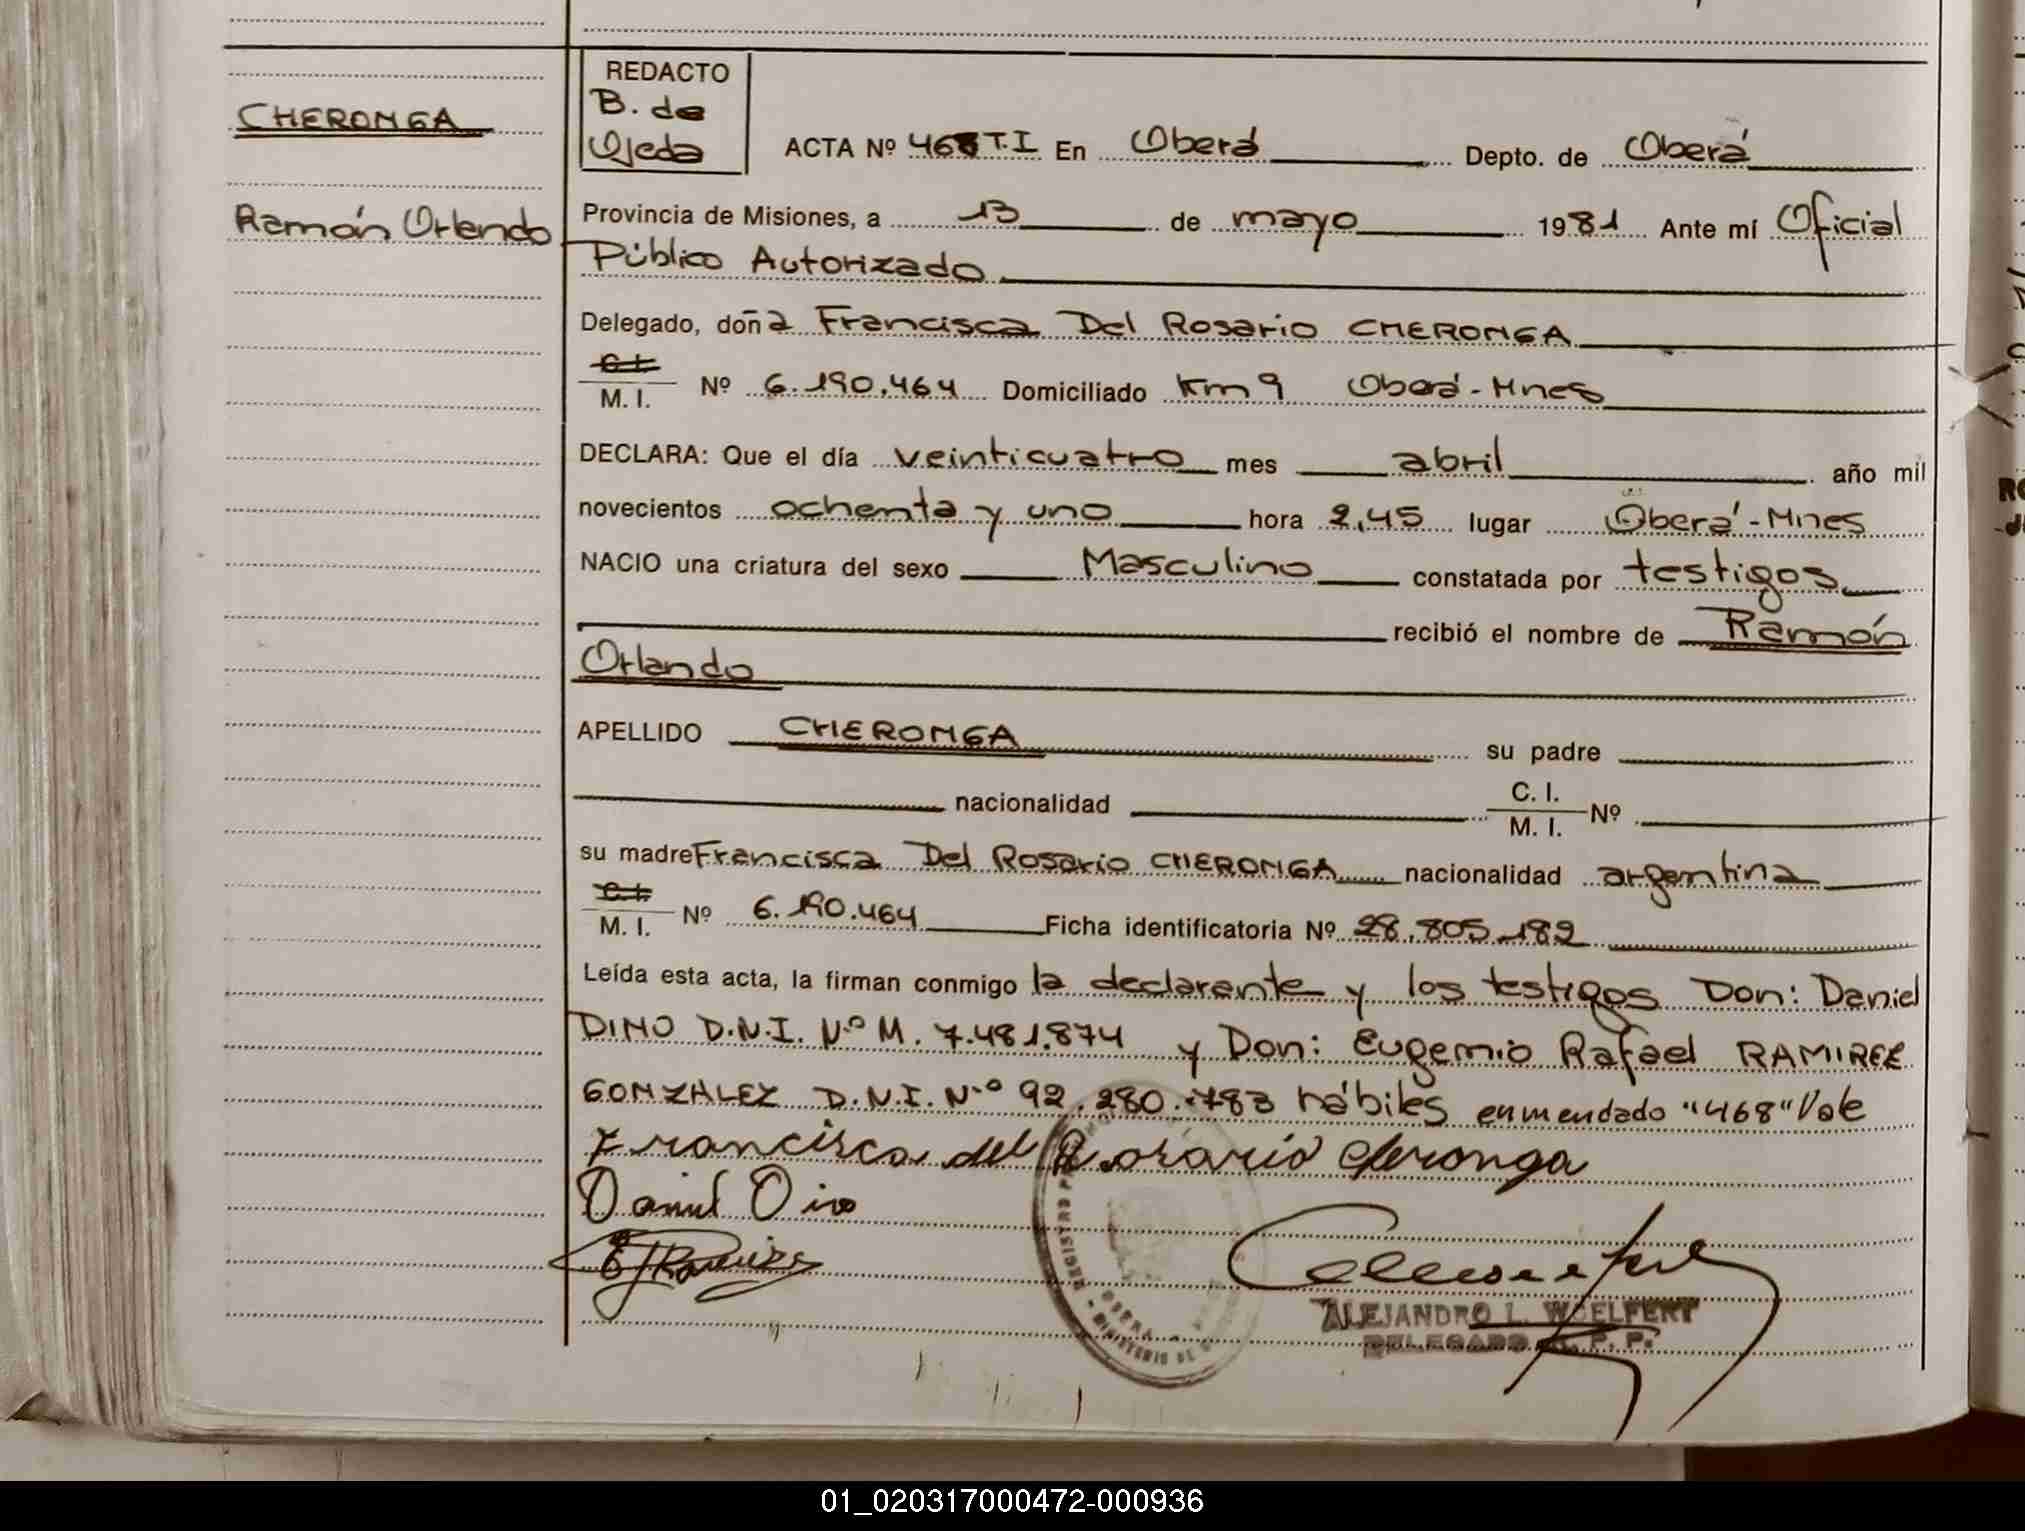 CHERONGA
Ramón Orlando
REDACTO
B. de
Ojeda
ACTA Nº 468 T.I En Oberá Depto. de Oberá
Provincia de Misiones, a 13 de mayo 1981 Ante mí Oficial
Público Autorizado
Delegado, doña Francisca Del Rosario CHERONGA
C.I.
M. I. Nº 6.190.464 Domiciliado Km 9 Oberá-Mnes
DECLARA: Que el día veinticuatro mes abril año mil
novecientos ochenta y uno hora 2,45 lugar Oberá-Mnes
NACIO una criatura del sexo Masculino constatada por testigos
recibió el nombre de Ramón
Orlando
APELLIDO CHERONGA su padre
nacionalidad C. I.
M. I. Nº
su madre Francisca Del Rosario CHERONGA nacionalidad argentina
C.I.
M. I. Nº 6.190.464 Ficha identificatoria Nº 28.805.182
Leída esta acta, la firman conmigo la declarante y los testigos Don: Daniel
DINO D.N.I. Nº M. 7.481.874 y Don: Eugenio Rafael RAMIREZ
GONZALEZ D.N.I. Nº 92.280.783 hábiles enmendado "468" Vale
Francisca del Rosario Cheronga
Daniel Dino
E R Ramirez
ALEJANDRO L. WOELFERT
DELEGADO R. P. P.
01_020317000472-000936